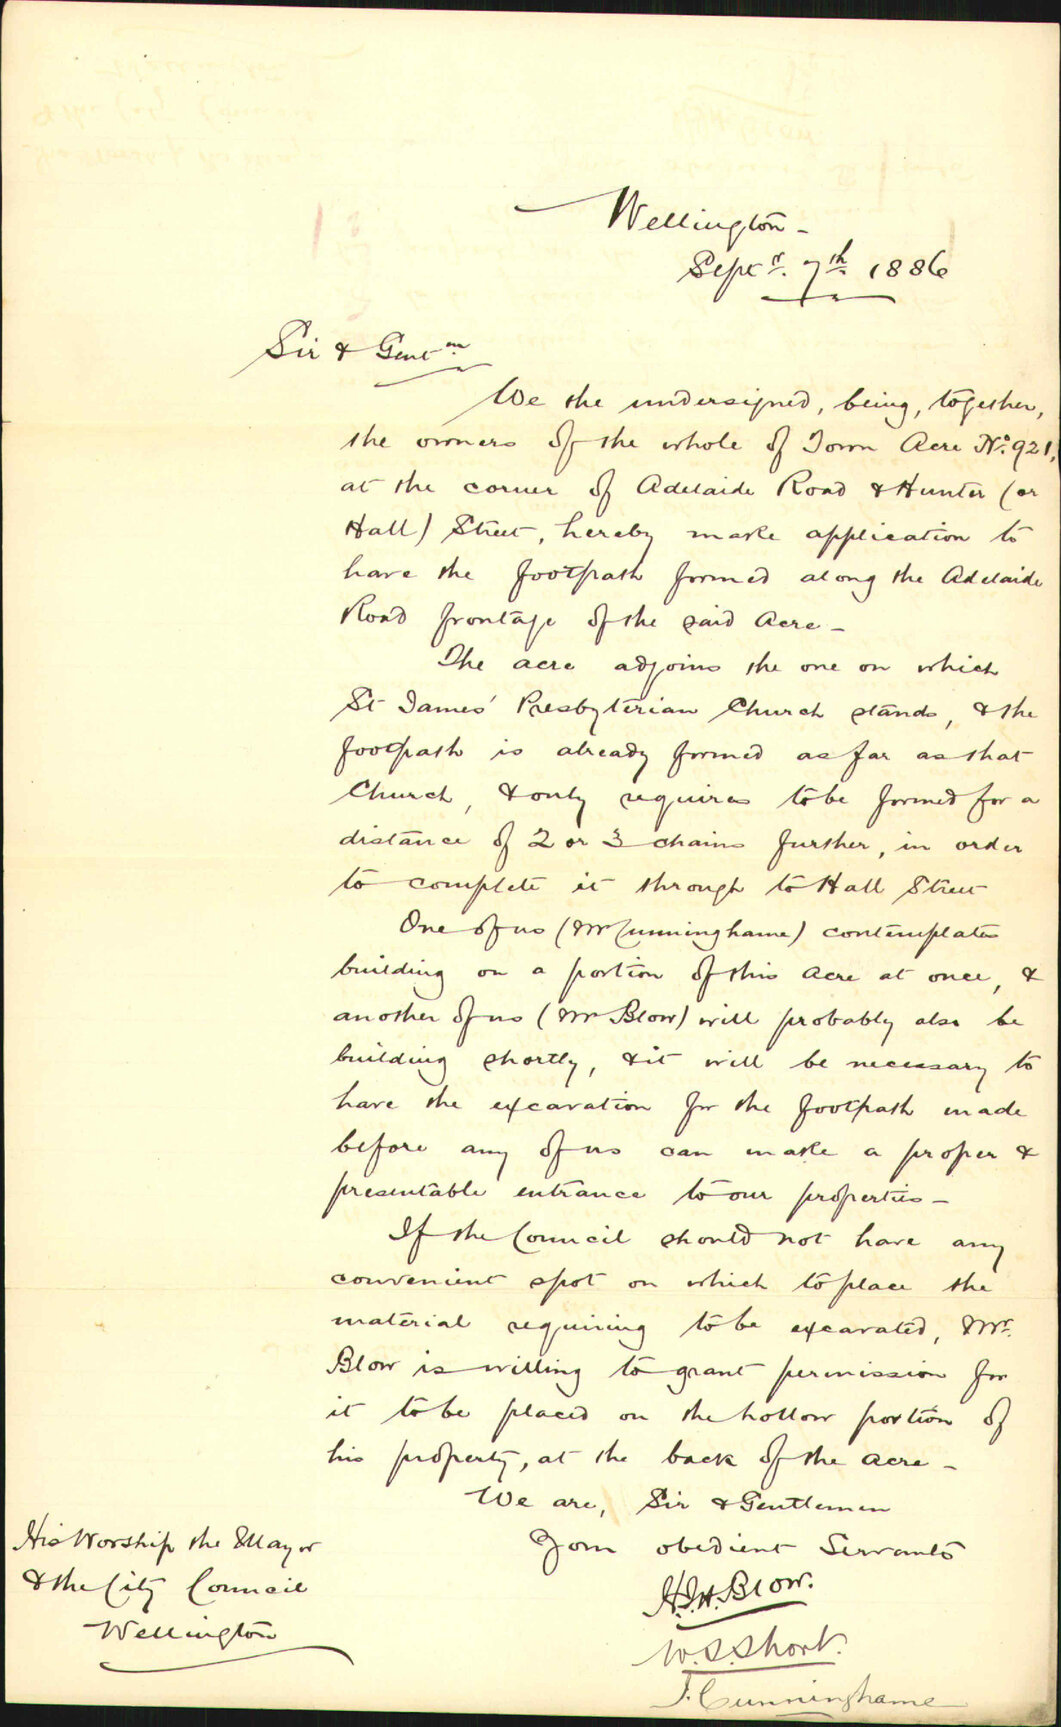 Wellington -
Septr. 7th. 1886
Sir & Gentn.
We the undersigned, being, together,
the owners of the whole of Town Acre No. 921,
at the corner of Adelaide Road & Hunter (or
Hall) Street, hereby make application to
have the footpath formed along the Adelaide
Road frontage of the said Acre -
The acre adjoins the one on which
St James' Presbyterian Church stands, & the
footpath is already formed as far as that
Church, & only requires to be formed for a
distance of 2 or 3 chains further, in order
to complete it through to Hall Street
One of us (Mr Cunninghame) contemplates
building on a portion of this Acre at once, &
another of us (Mr Blow) will probably also be
building shortly, & it will be necessary to
have the excavation for the footpath made
before any of us can make a proper &
presentable entrance to our properties -
If the Council should not have any
convenient spot on which to place the
material requiring to be excavated, Mr.
Blow is willing to grant permission for
it to be placed on the hollow portion of
his property, at the back of the acre -
We are, Sir & Gentlemen
Your obedient Servants
H.J.H. Blow.
W.S. Short.
J. Cunninghame
His Worship the Mayor
& the City Council
Wellington